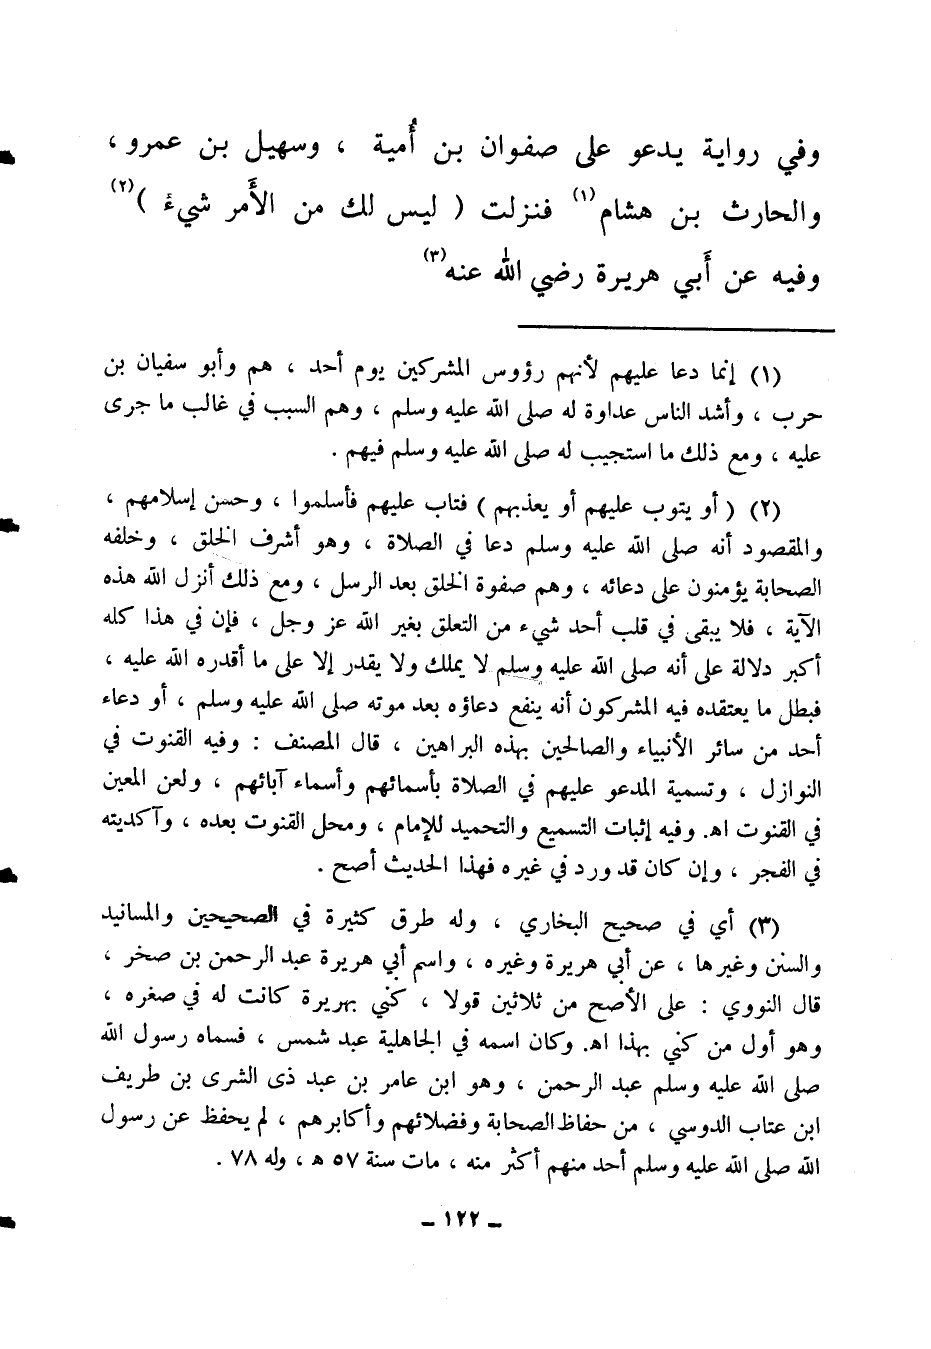 وفي رواية يدعو على صفوان بن أُمية ، وسهيل بن عمرو ،
والحارث بن هشام(١) فنزلت ( ليس لك من الأَمر شيءٌ )(٢)
وفيه عن أَبي هريرة رضي الله عنه(٣)
(١) إنما دعا عليهم لأنهم رؤوس المشركين يوم أحد ، هم وأبو سفيان بن
حرب ، وأشد الناس عداوة له صلى الله عليه وسلم ، وهم السبب في غالب ما جرى
عليه ، ومع ذلك ما استجيب له صلى الله عليه وسلم فيهم .
(٢) ( أو يتوب عليهم أو يعذبهم ) فتاب عليهم فأسلموا ، وحسن إسلامهم ،
والمقصود أنه صلى الله عليه وسلم دعا في الصلاة ، وهو أشرف الخلق ، وخلفه
الصحابة يؤمنون على دعائه ، وهم صفوة الخلق بعد الرسل ، ومع ذلك أنزل الله هذه
الآية ، فلا يبقى في قلب أحد شيء من التعلق بغير الله عز وجل ، فإن في هذا كله
أكبر دلالة على أنه صلى الله عليه وسلم لا يملك ولا يقدر إلا على ما أقدره الله عليه ،
فبطل ما يعتقده فيه المشركون أنه ينفع دعاؤه بعد موته صلى الله عليه وسلم ، أو دعاء
أحد من سائر الأنبياء والصالحين بهذه البراهين ، قال المصنف : وفيه القنوت في
النوازل ، وتسمية المدعو عليهم في الصلاة بأسمائهم وأسماء آبائهم ، ولعن المعين
في القنوت اه‍. وفيه إثبات التسميع والتحميد للإمام ، ومحل القنوت بعده ، وآكديته
في الفجر ، وإن كان قد ورد في غيره فهذا الحديث أصح .
(٣) أي في صحيح البخاري ، وله طرق كثيرة في الصحيحين والمسانيد
والسنن وغيرها ، عن أبي هريرة وغيره ، واسم أبي هريرة عبد الرحمن بن صخر ،
قال النووي : على الأصح من ثلاثين قولا ، كني بهريرة كانت له في صغره ،
وهو أول من كني بهذا اه‍. وكان اسمه في الجاهلية عبد شمس ، فسماه رسول الله
صلى الله عليه وسلم عبد الرحمن ، وهو ابن عامر بن عبد ذى الشرى بن طريف
ابن عتاب الدوسي ، من حفاظ الصحابة وفضلائهم وأكابرهم ، لم يحفظ عن رسول
الله صلى الله عليه وسلم أحد منهم أكثر منه ، مات سنة ٥٧ ه‍ ، وله ٧٨ .
– ١٢٢ –